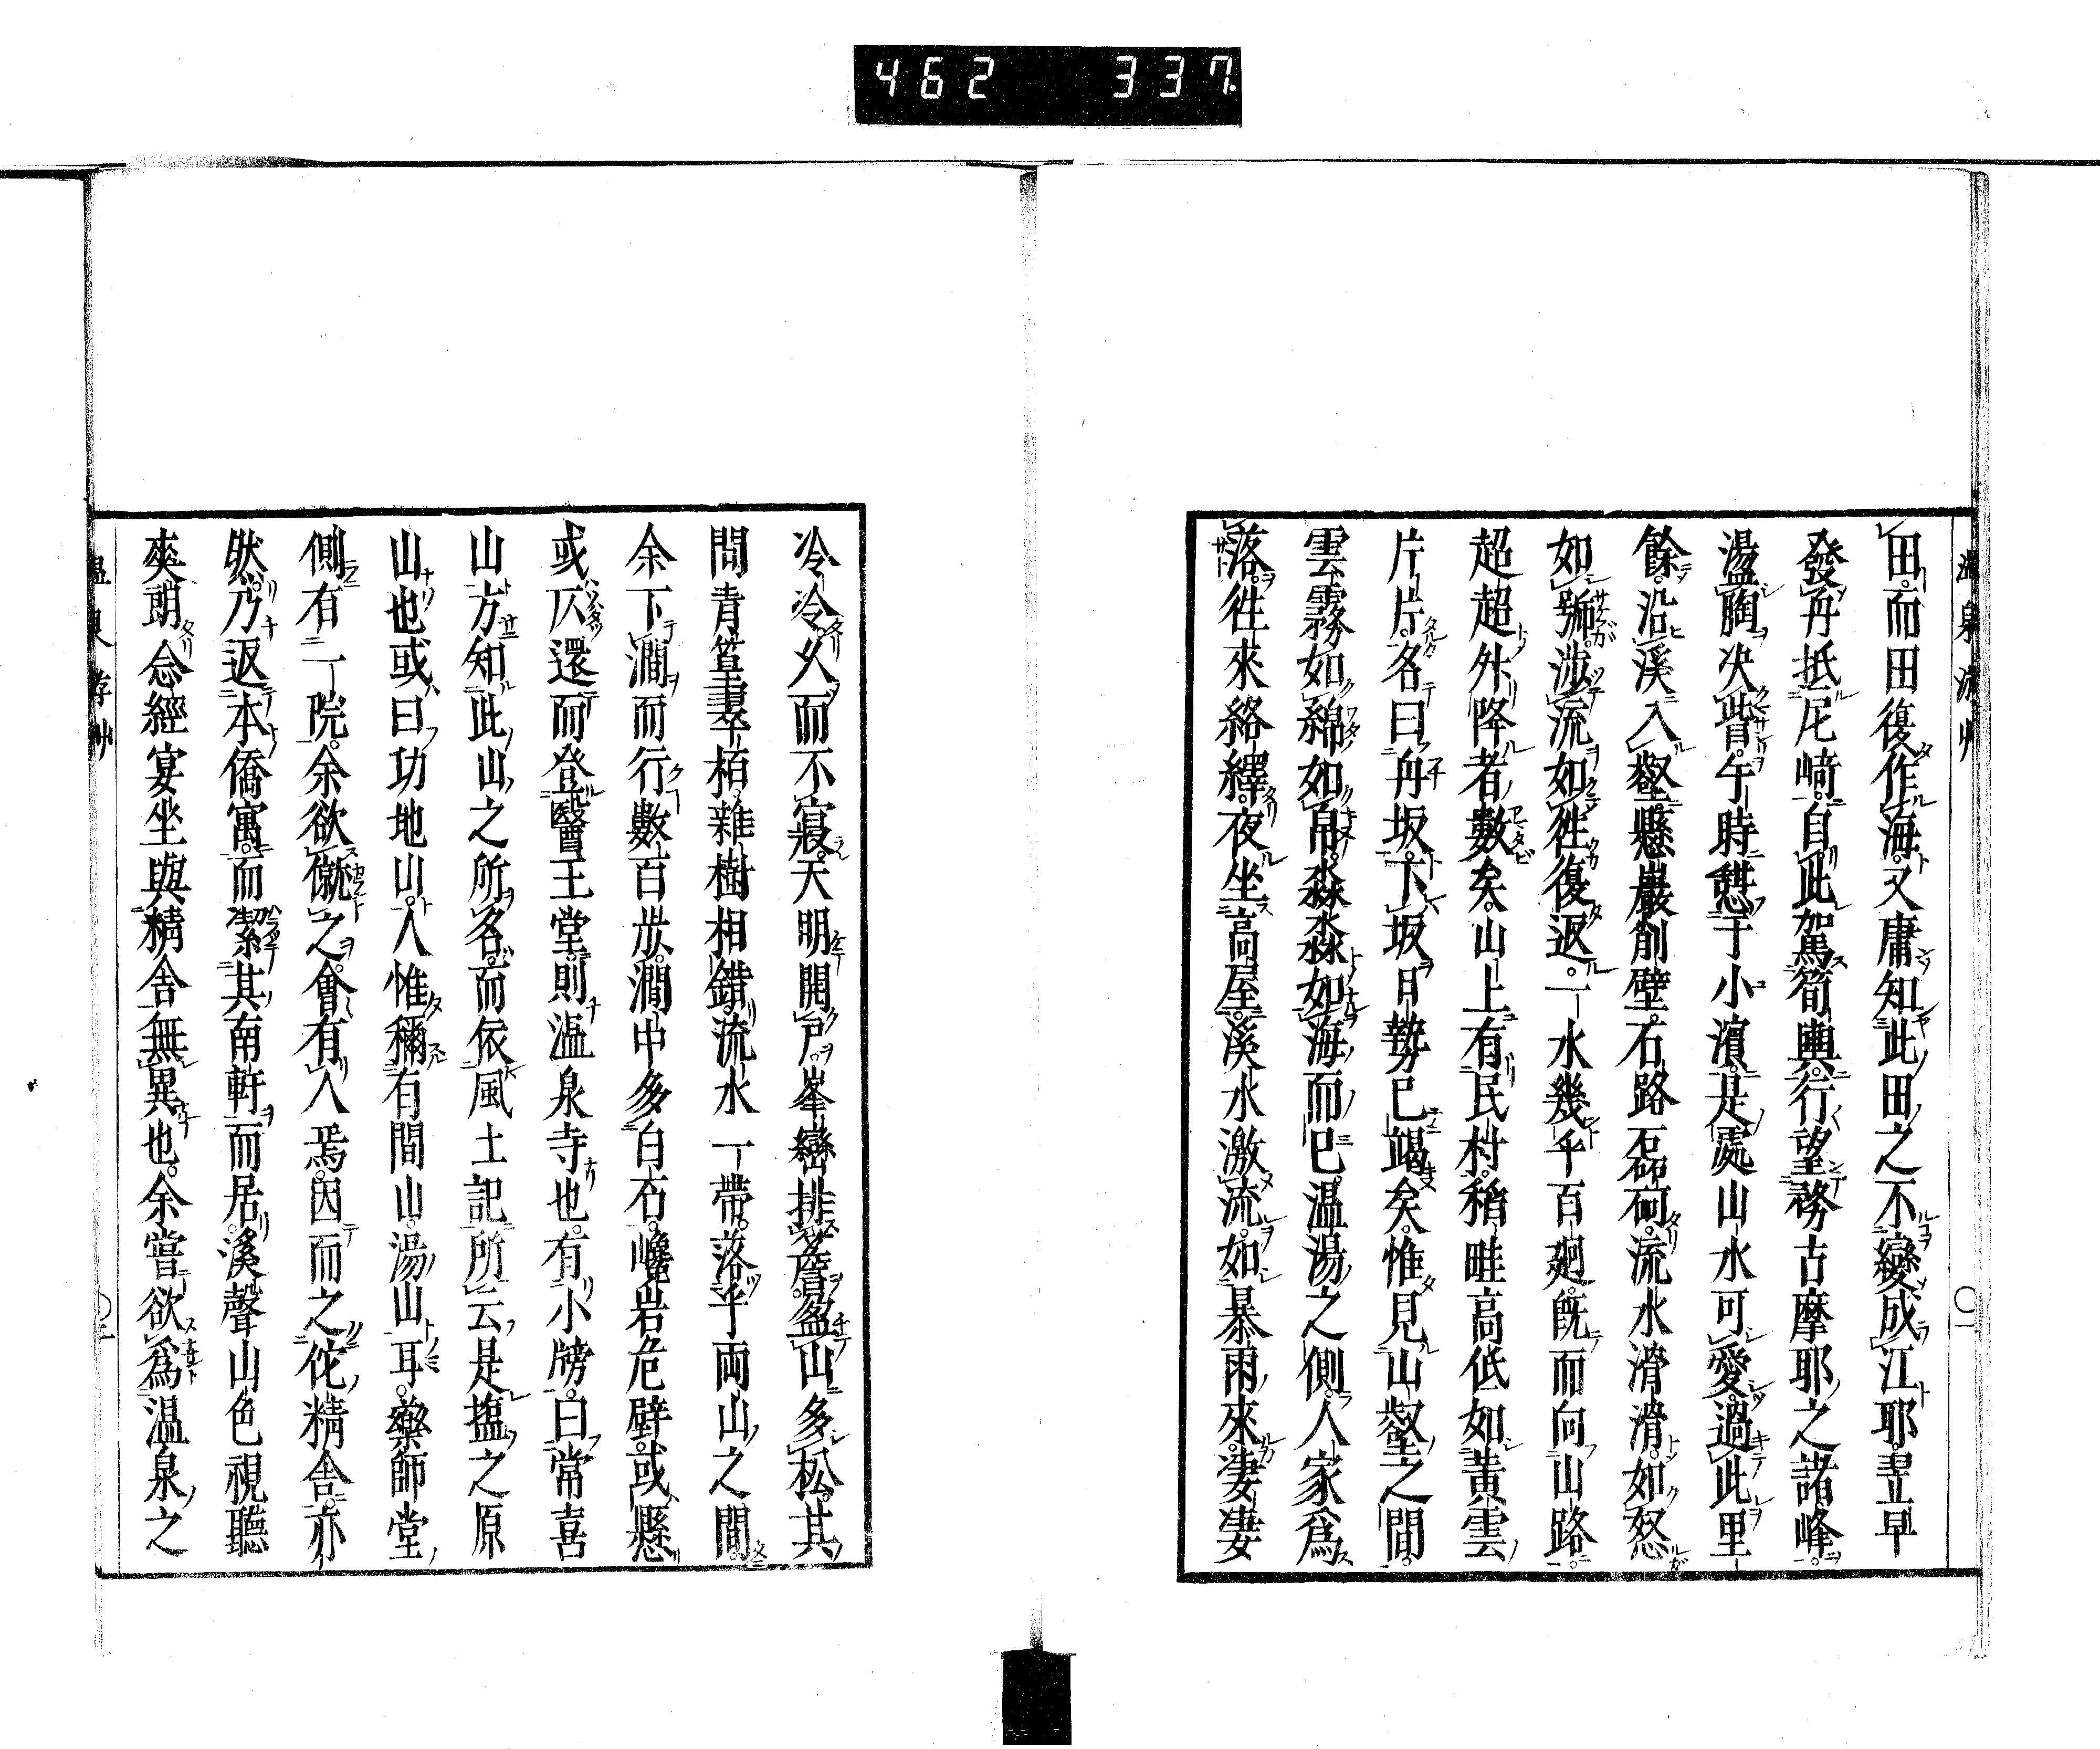 462 337
田。而田復作海。又庸知此田之不變成江耶。翌早
發舟抵尼崎。自此駕筍輿。行望務古摩耶之諸峰。
盪胸決眥。午時憩于小濱。是處山水可愛。過此里
餘。沿溪入壑。懸巖削壁。石路磊砢。流水滑滑。如怒
如號。涉流如徃復返。一水幾千百廻。旣而向山路。
超超外降者數矣。山上有民村。稻畦高低如黃雲
片片。名曰舟坂。下坂日勢已竭矣。惟見山壑之間。
雲霧如綿如帛。淼淼如海而已。温湯之側。人家爲
落。徃來絡繹。夜坐高屋。溪水激流。如暴雨來。凄凄
冷冷。久而不寢。天明開戶。峯巒排詹。盈山多松。其
間青篁翠栢。雜樹相錯。流水一帶。落乎兩山之間。
余下澗而行數百步。澗中多白石。巉岩危壁。或懸
或仄。還而登醫王堂。則温泉寺也。有小牓。曰常喜
山。方知此山之所名。而依風土記所云。是塩之原
山也。或曰功地山。人惟稱有間山。湯山耳。藥師堂
側有一院。余欲僦之。會有人焉。因而之佗精舍。亦
狀。乃返本僑寓。而潔其南軒而居。溪聲山色視聽
爽朗。念經宴坐與精舍無異也。余嘗欲爲温泉之
温泉游艸 〇二